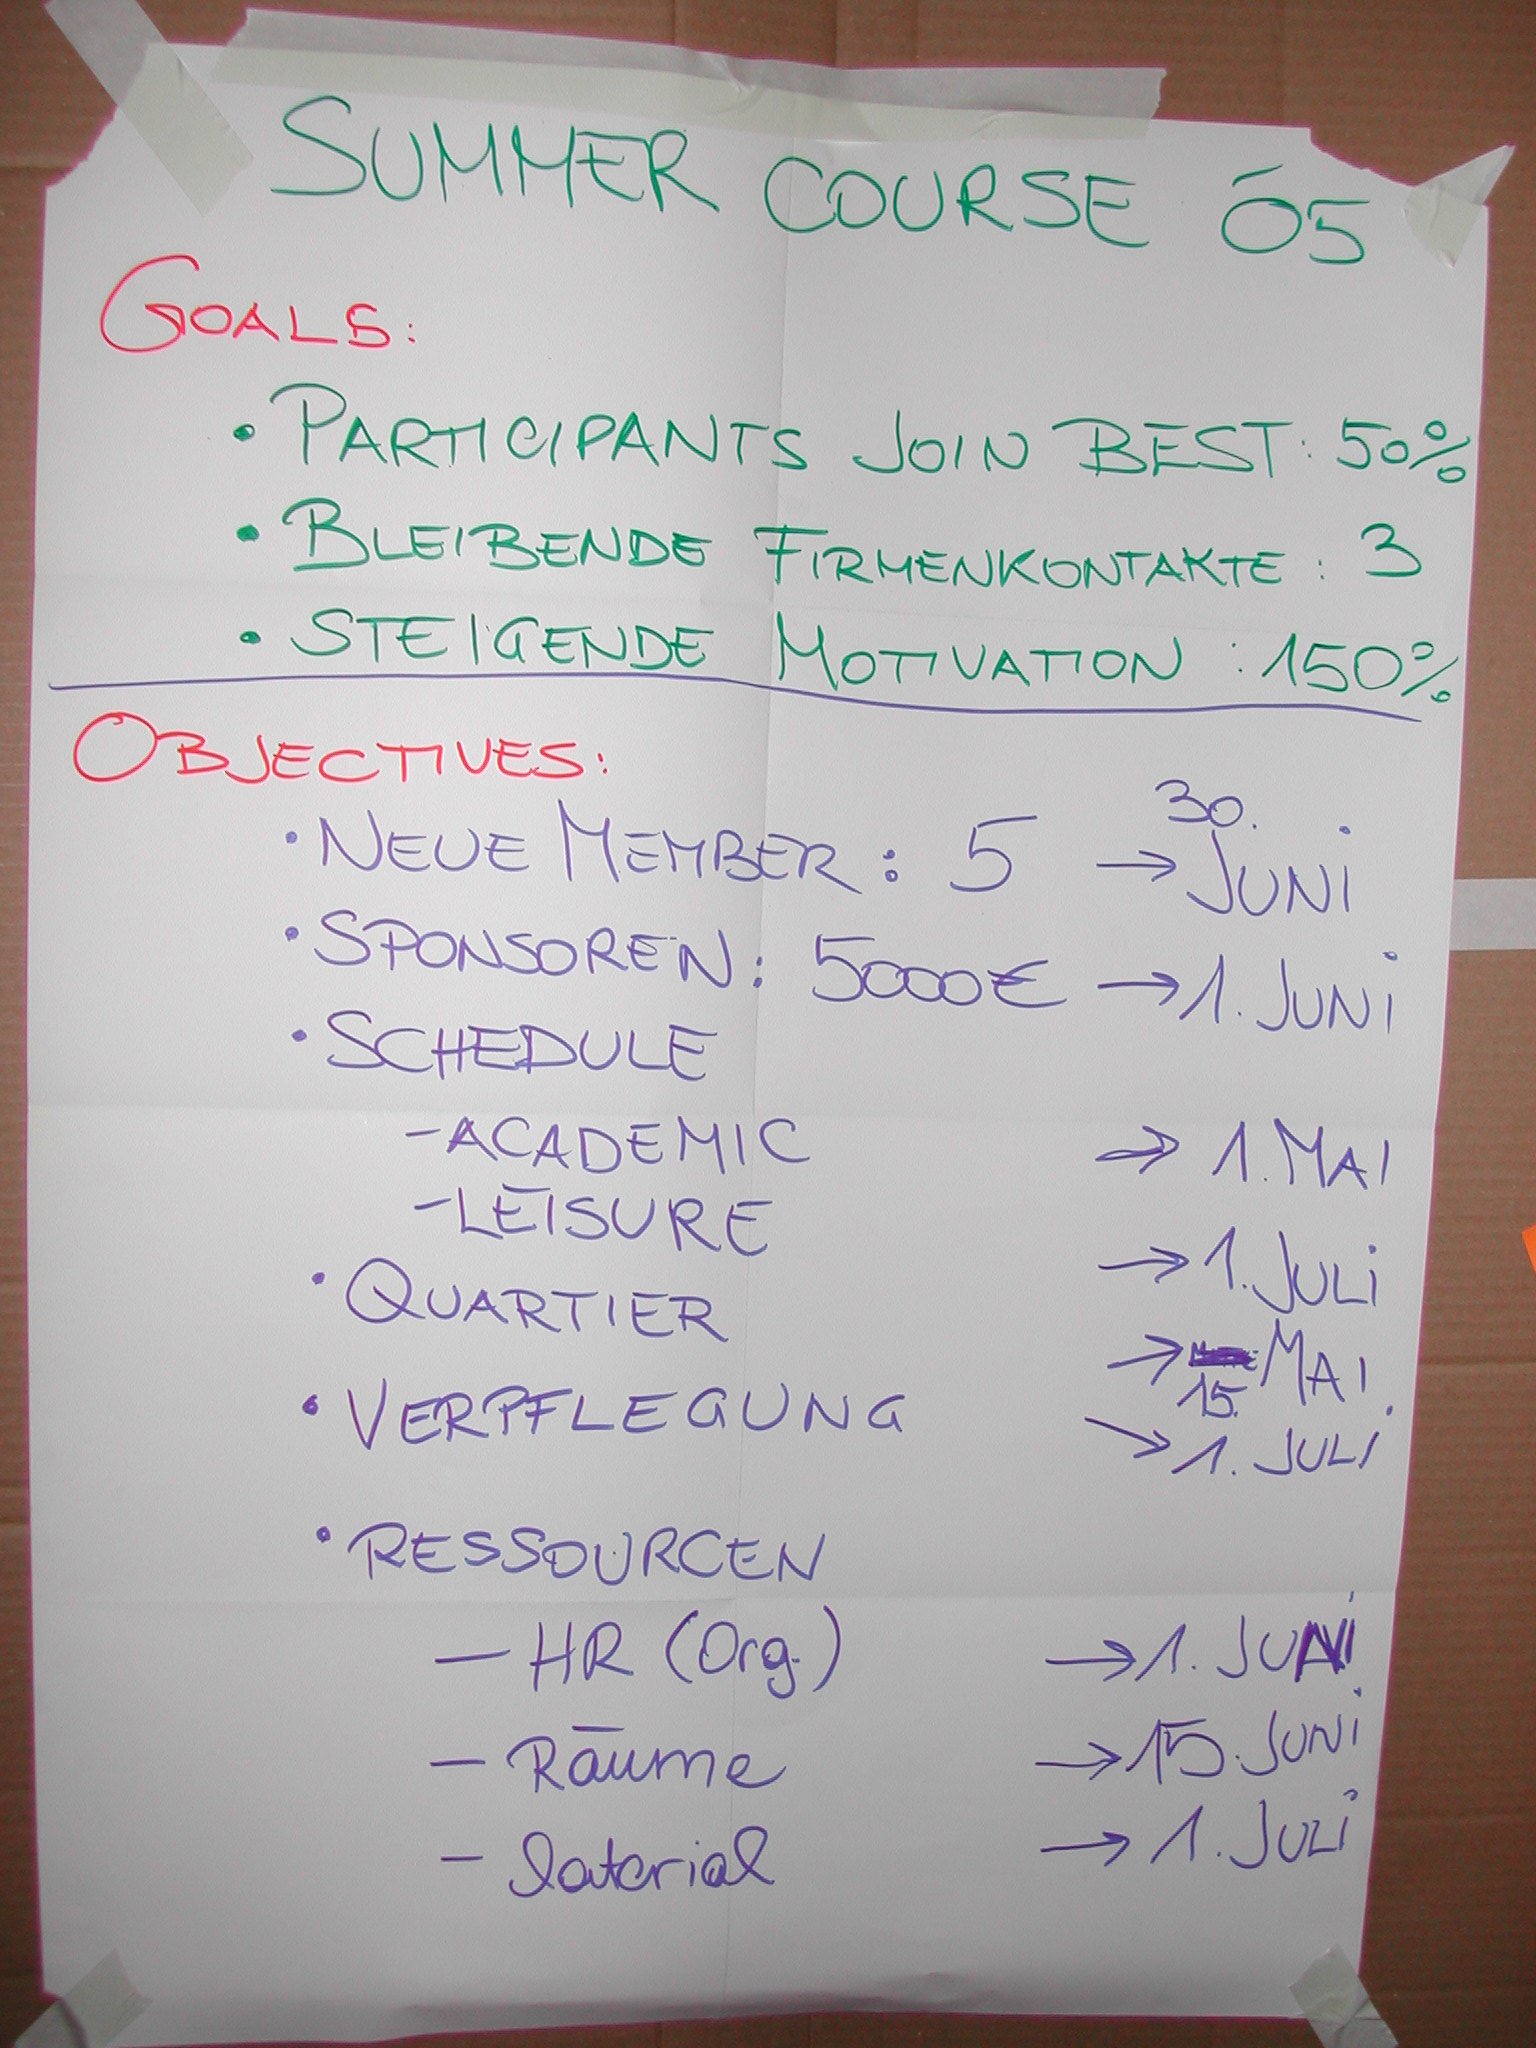 SUMMER COURSE 05
GOALS:
• PARTICIPANTS JOIN BEST: 50%
• BLEIBENDE FIRMENKONTAKTE: 3
• STEIGENDE MOTIVATION: 150%
OBJECTIVES:
• NEUE MEMBER: 5 → 30. JUNI
• SPONSOREN: 5000€ → 1. JUNI
• SCHEDULE
- ACADEMIC → 1. MAI
- LEISURE → 1. JULI
• QUARTIER → 15. MAI
• VERPFLEGUNG → 1. JULI
• RESSOURCEN
- HR (Org.) → 1. JUNI
- Räume → 15. JUNI
- Material → 1. JULI